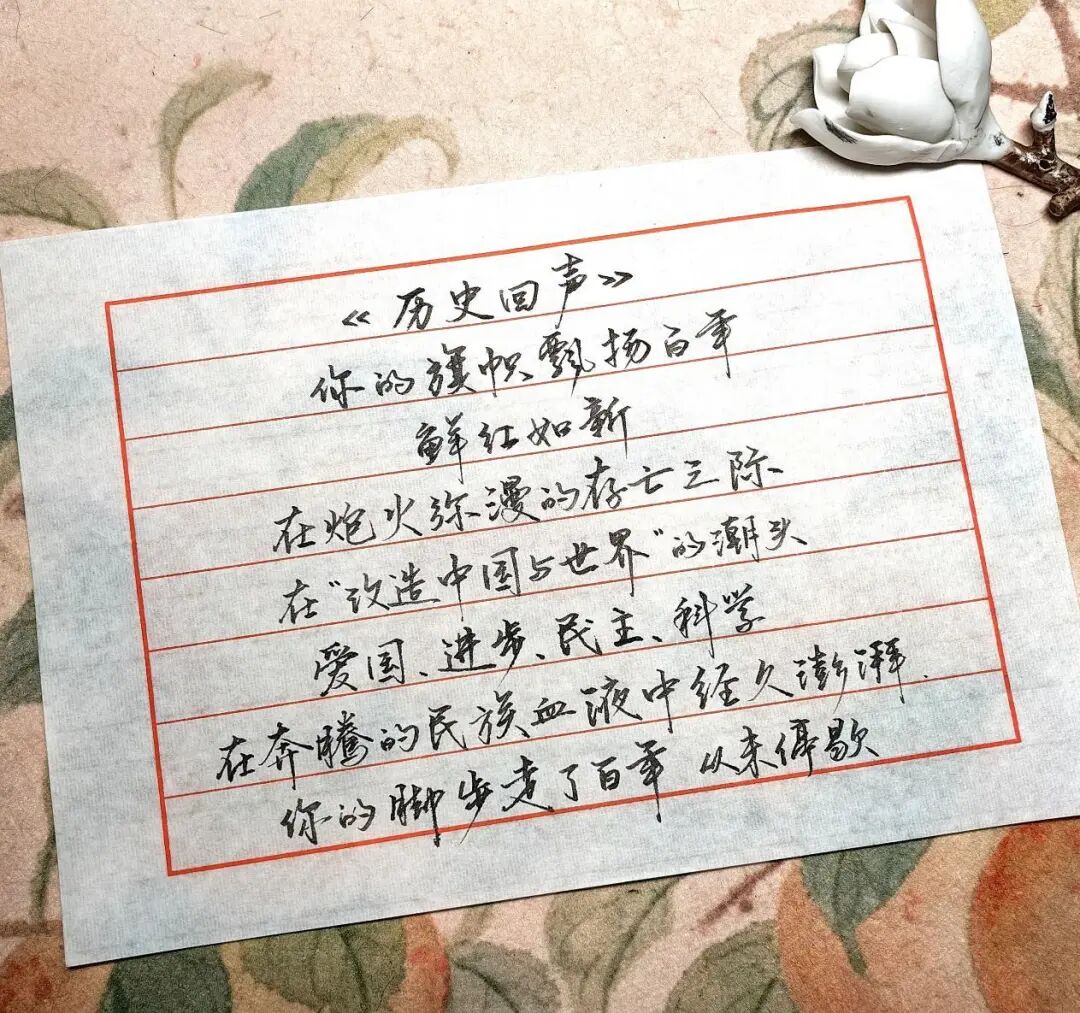 《历史回声》
你的旗帜飘扬百年
鲜红如新
在炮火弥漫的存亡之际
在“改造中国与世界”的潮头
爱国、进步、民主、科学
在奔腾的民族血液中经久澎湃.
你的脚步走了百年 从未停歇